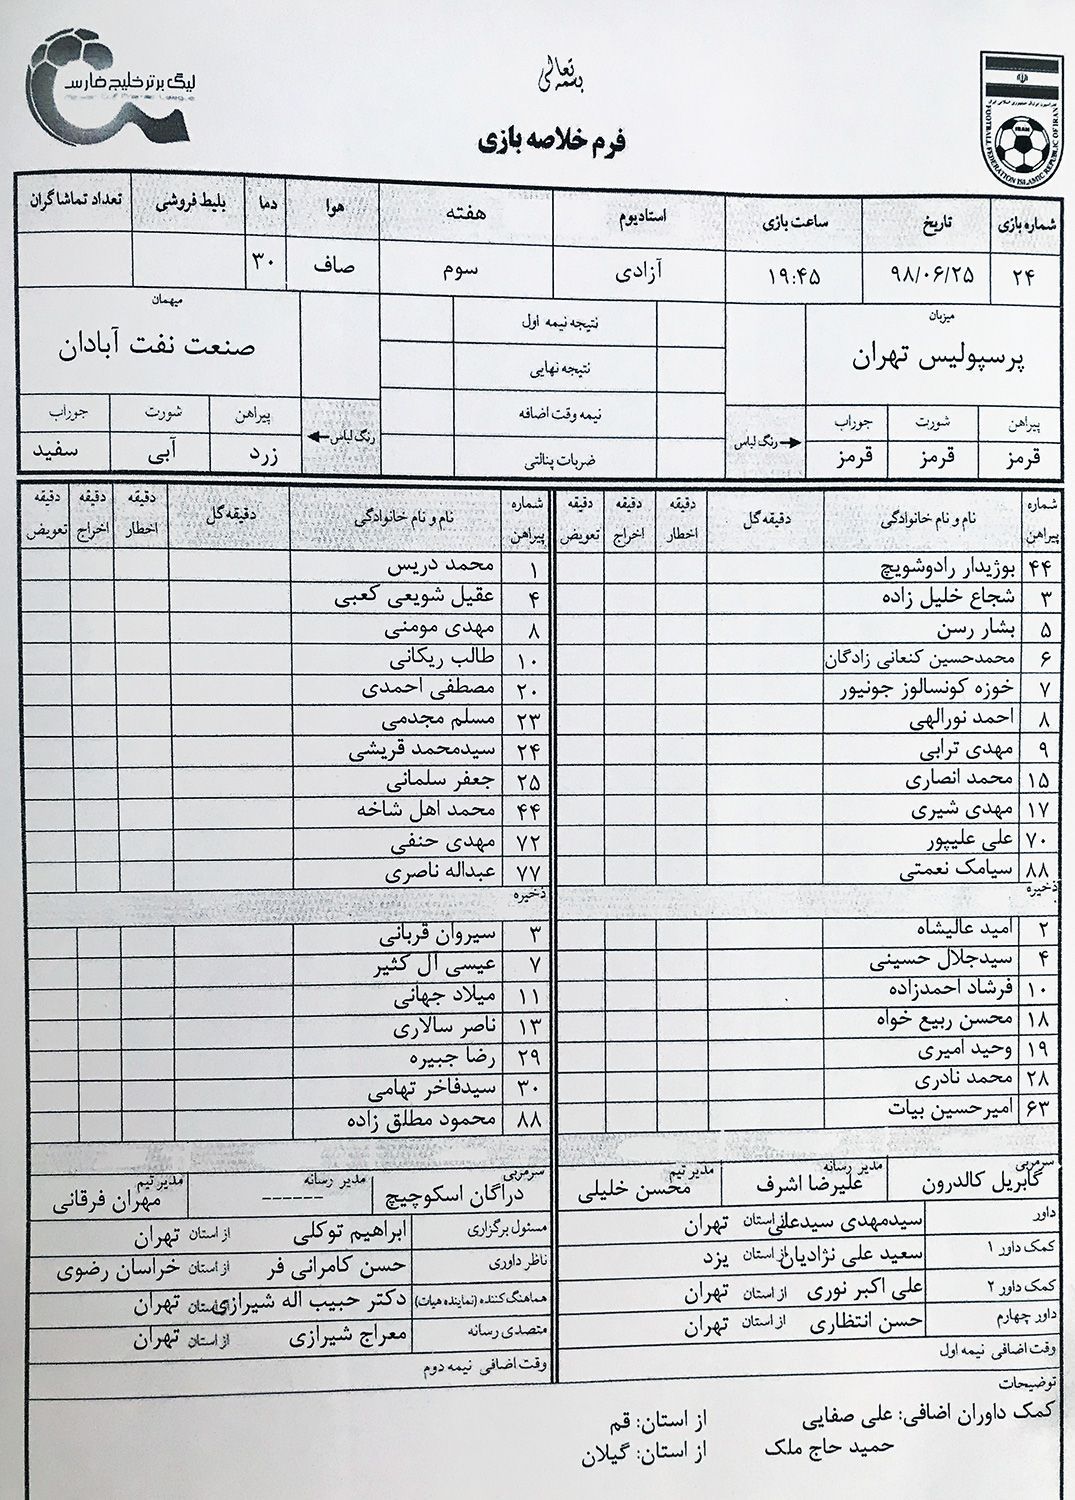 بسمه تعالی
لیگ برتر خلیج فارس
IRAN
FOOTBALL FEDERATION ISLAMIC REPUBLIC OF IRAN
فرم خلاصه بازی
شماره بازی تاریخ ساعت بازی استادیوم هفته هوا دما بلیط فروشی تعداد تماشاگران
۲۴ ۹۸/۰۶/۲۵ ۱۹:۴۵ آزادی سوم صاف ۳۰
میزبان نتیجه نیمه اول میهمان
پرسپولیس تهران نتیجه نهایی صنعت نفت آبادان
پیراهن شورت جوراب رنگ لباس نیمه وقت اضافه رنگ لباس پیراهن شورت جوراب
قرمز قرمز قرمز ضربات پنالتی زرد آبی سفید
شماره پیراهن نام و نام خانوادگی دقیقه گل دقیقه اخطار دقیقه اخراج دقیقه تعویض شماره پیراهن نام و نام خانوادگی دقیقه گل دقیقه اخطار دقیقه اخراج دقیقه تعویض
۴۴ بوژیدار رادوشویچ ۱ محمد دریس
۳ شجاع خلیل زاده ۴ عقیل شویعی کعبی
۵ بشار رسن ۸ مهدی مومنی
۶ محمدحسین کنعانی زادگان ۱۰ طالب ریکانی
۷ خوزه کونسالوز جونیور ۲۰ مصطفی احمدی
۸ احمد نورالهی ۲۳ مسلم مجدمی
۹ مهدی ترابی ۲۴ سیدمحمد قریشی
۱۵ محمد انصاری ۲۵ جعفر سلمانی
۱۷ مهدی شیری ۴۴ محمد اهل شاخه
۷۰ علی علیپور ۷۲ مهدی حنفی
۸۸ سیامک نعمتی ۷۷ عبداله ناصری
ذخیره ذخیره
۲ امید عالیشاه ۳ سیروان قربانی
۴ سیدجلال حسینی ۷ عیسی آل کثیر
۱۰ فرشاد احمدزاده ۱۱ میلاد جهانی
۱۸ محسن ربیع خواه ۱۳ ناصر سالاری
۱۹ وحید امیری ۲۹ رضا جبیره
۲۸ محمد نادری ۳۰ سیدفاخر تهامی
۶۳ امیرحسین بیات ۸۸ محمود مطلق زاده
سرمربی مدیر رسانه مدیر تیم سرمربی مدیر رسانه مدیر تیم
گابریل کالدرون علیرضا اشرف محسن خلیلی دراگان اسکوچیچ ------ مهران فرقانی
داور سیدمهدی سیدعلی از استان تهران مسئول برگزاری ابراهیم توکلی از استان تهران
کمک داور ۱ سعید علی نژادیان از استان یزد ناظر داوری حسن کامرانی فر از استان خراسان رضوی
کمک داور ۲ علی اکبر نوری از استان تهران هماهنگ کننده (نماینده هیات) دکتر حبیب اله شیرازی از استان تهران
داور چهارم حسن انتظاری از استان تهران متصدی رسانه معراج شیرازی از استان تهران
وقت اضافی نیمه اول وقت اضافی نیمه دوم
توضیحات
کمک داوران اضافی: علی صفایی از استان: قم
حمید حاج ملک از استان: گیلان